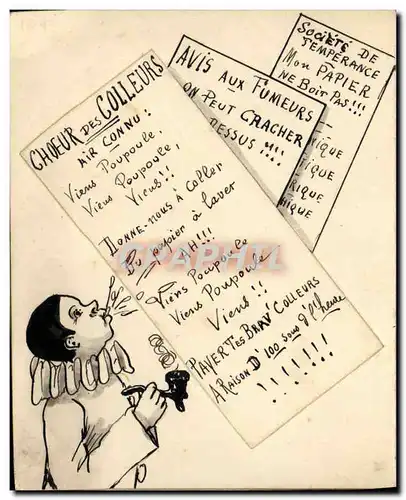 CHOEUR DES COLLEURS
AIR CONNU:
Viens Poupoule,
Viens Poupoule,
Viens!!
DONNE-NOUS À COLLER
Du papier à laver
AH!!!
Viens Poupoule
Viens Poupoule
Viens!!
PAYER TES BRAV' COLLEURS
A RAISON D 100 sous d' l'heure
!!!!!!!
AVIS AUX FUMEURS
ON PEUT CRACHER
DESSUS!!!!
SOCIÉTÉ DE
TEMPÉRANCE
Mon PAPIER
NE BOIT PAS!!!
IQUE
IQUE
RIQUE
IQUE
CPAPHIL